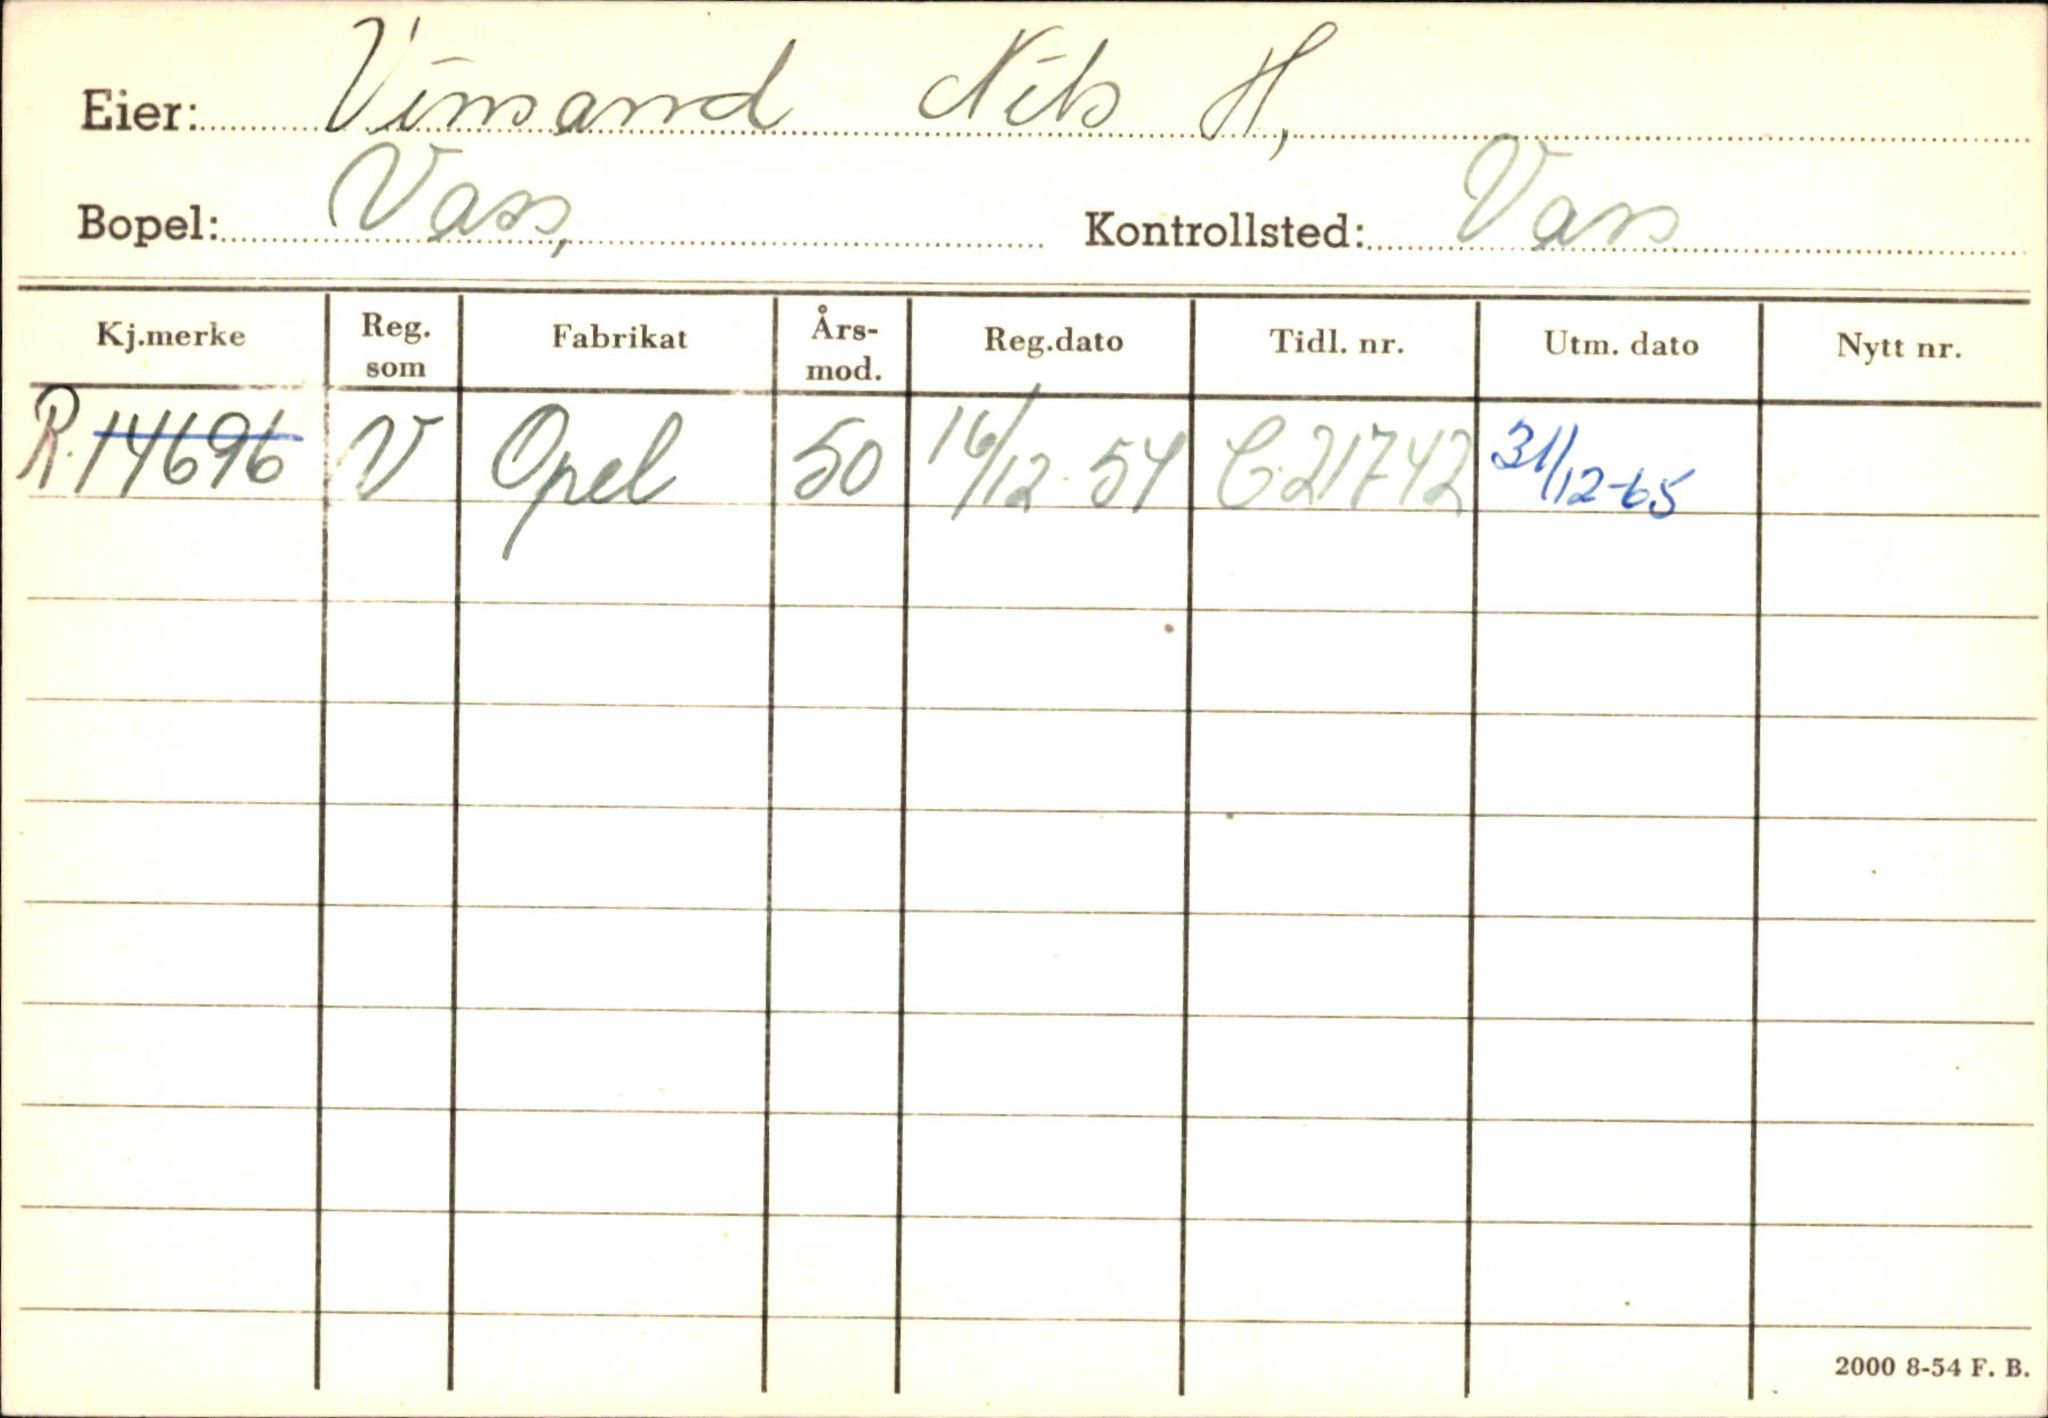 Eier: Vinsand Nils H,
Bopel: Vass, Kontrollsted: Vass
Kj.merke Reg. som Fabrikat Års-mod. Reg.dato Tidl. nr. Utm. dato Nytt nr.
R-14696 V Opel 50 16/12-54 C-21742 31/12-65
2000 8-54 F. B.